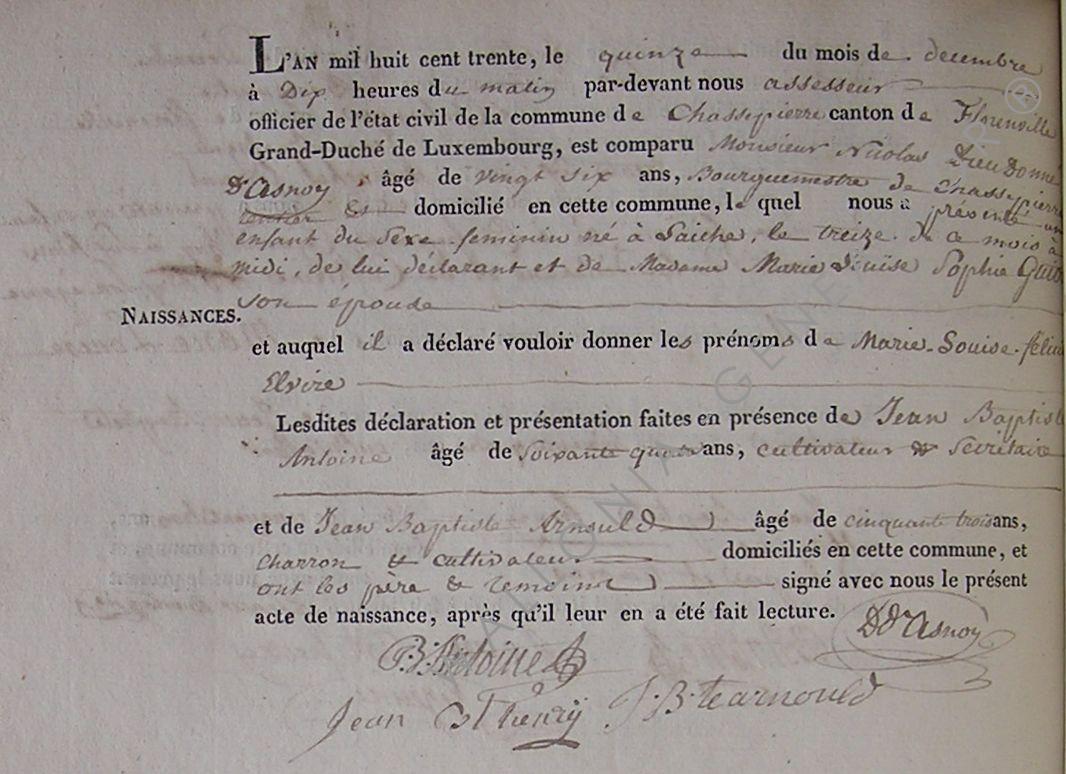 L'AN mil huit cent trente, le quinze du mois de decembre
à Dix heures du matin par-devant nous assesseur
officier de l'état civil de la commune de Chassepierre canton de Florenville
Grand-Duché de Luxembourg, est comparu Monsieur Nicolas Dieudonné
D'Asnoy âgé de vingt six ans, Bourguemestre de Chassepierre
domicilié en cette commune, le quel nous a présenté un
enfant du sexe feminin né à Laiche, le treize de ce mois à
midi, de lui déclarant et de Madame Marie Louise Sophie
son épouse
NAISSANCES.
et auquel il a déclaré vouloir donner les prénoms de Marie-Louise-
Elvire
Lesdites déclaration et présentation faites en présence de Jean Baptiste
Antoine âgé de soixante ans, cultivateur & Secrétaire
et de Jean Baptiste Arnould âgé de cinquante trois ans,
charron & cultivateur domiciliés en cette commune, et
ont les père & temoins signé avec nous le présent
acte de naissance, après qu'il leur en a été fait lecture.
DdAsnoy
B. Antoine
Jean Bt henry J. B. te arnould